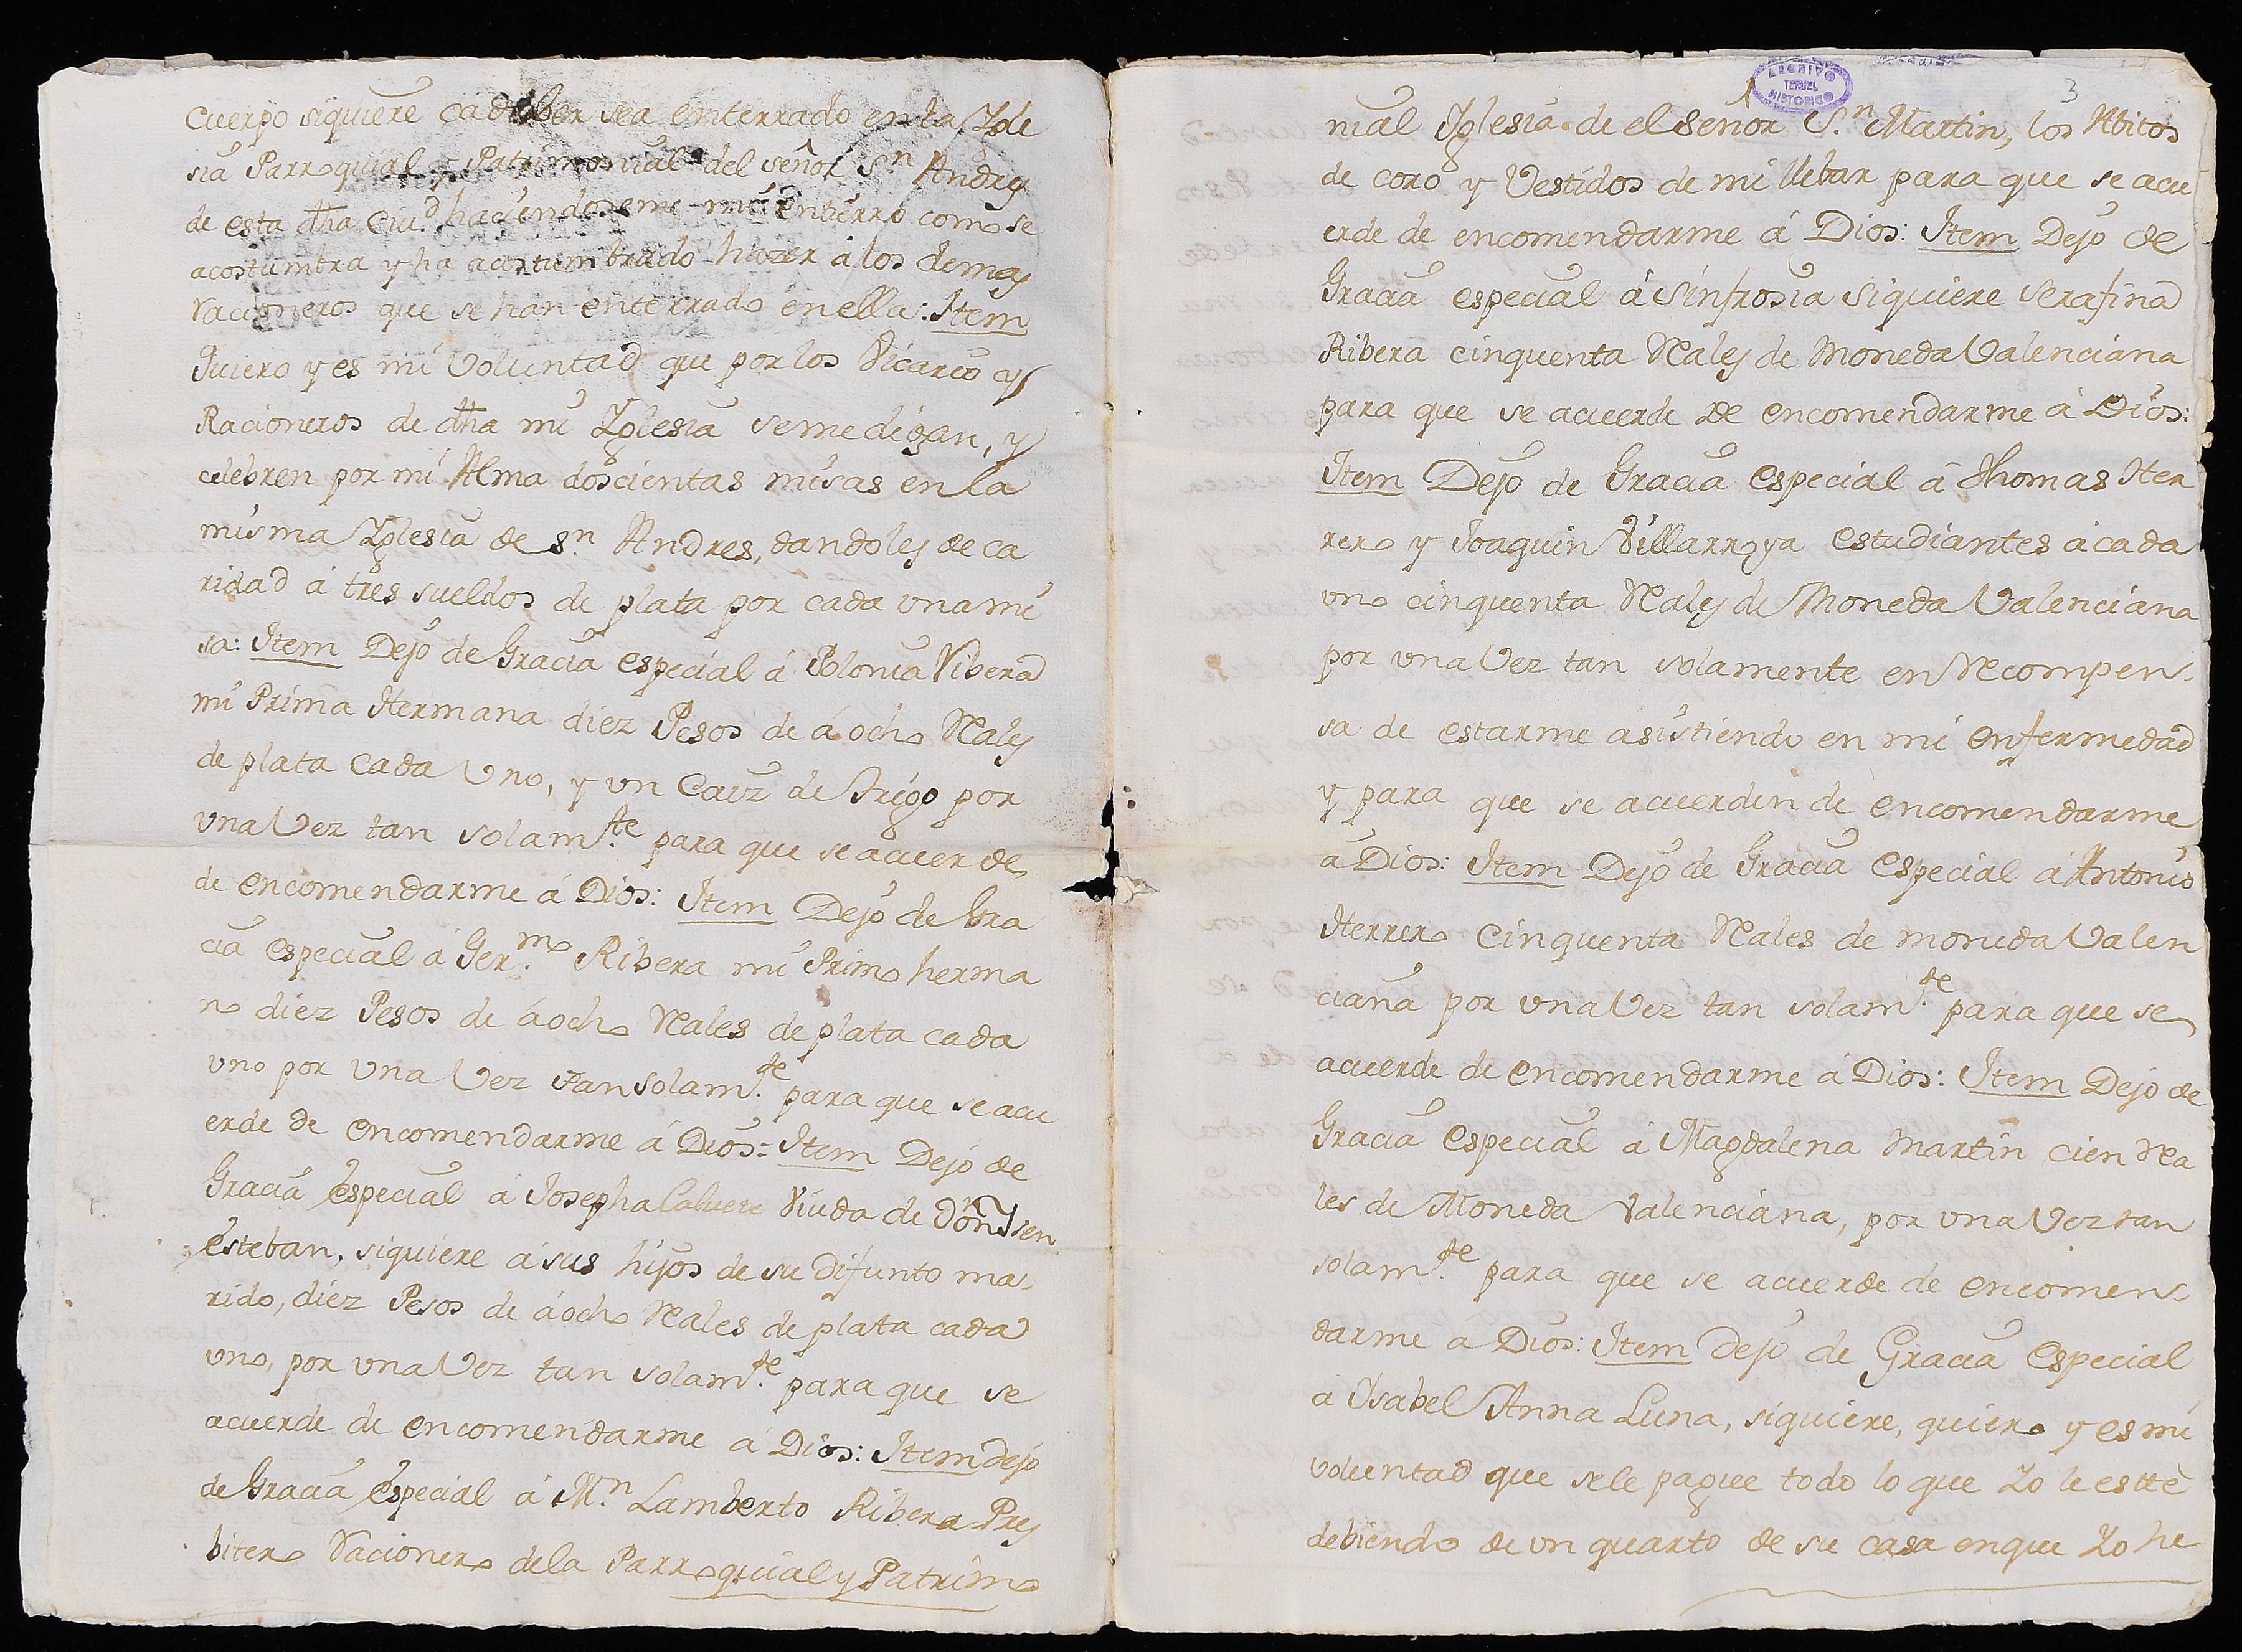 cuerpo siquiere cadaber sea enterrado en la Zgle
sia Parroquial y Patrimonial del señor Sn Andres
de esta dha Ciud. haciendoseme mi entierro como se
acostumbra y ha acostumbrado hazer á los demas
Racioneros que se han enterrado en ella: Item
Quiero y es mi Voluntad que por los Vicario y
Racioneros de dha mi Zglesia se me digan, y
celebren por mi Alma doscientas misas en la
misma Zglesia de Sn. Andres, dandoles de ca
ridad á tres sueldos de plata por cada una mi
sa: Item Dejo de Gracia especial á Polonia Ribera
mi Prima Hermana diez Pesos de á ocho Rales
de plata cada Uno, y un Caiz de Trigo por
una Vez tan solamte. para que se acuerde
de encomendarme á Dios: Item Dejo de Gra
cia especial á Germo. Ribera mi Primo herma
no diez Pesos de á ocho Reales de plata cada
uno por Una Vez tan solamte. para que se acu
erde de encomendarme á Dios: Item Dejo de
Gracia especial á Josepha Calvete Viuda de
esteban, siquiere á sus hijos de su difunto ma-
rido, diez Pesos de á ocho Reales de plata cada
uno, por una Vez tan solamte. para que se
acuerde de encomendarme á Dios: Item dejo
de Gracia especial á Mn. Lamberto Ribera Pres
bitero Racionero de la Parroquial y Patrimo
3
ARCHIVO HISTORICO TERUEL
nial Yglesia de el Señor Sn. Martin, los Abitos
de coro y Vestidos de mi llebar para que se acu
erde de encomendarme á Dios: Item Dejo de
Gracia especial á Sinfrosia siquiere Serafina
Ribera cinquenta Rales de Moneda Valenciana
para que se acuerde de encomendarme á Dios:
Item Dejo de Gracia especial á Thomas Her
rero y Joaquin Villarroya estudiantes á cada
uno cinquenta Rales de Moneda Valenciana
por una Vez tan solamente en Recompen-
sa de estarme ásistiendo en mi enfermedad
y para que se acuerden de encomendarme
á Dios: Item Dejo de Gracia especial á Antonio
Herrero cinquenta Reales de moneda Valen
ciana por una Vez tan solamte. para que se
acuerde de encomendarme á Dios: Item Dejo de
Gracia especial á Magdalena Martin cien Rea
les de Moneda Valenciana, por una Vez tan
solamte. para que se acuerde de encomen-
darme á Dios: Item dejo de Gracia especial
á Ysabel Anna Luna, siquiere, quiero y es mi
voluntad que se le pague todo lo que Zo le estté
debiendo de un quarto de su casa en que Zo he